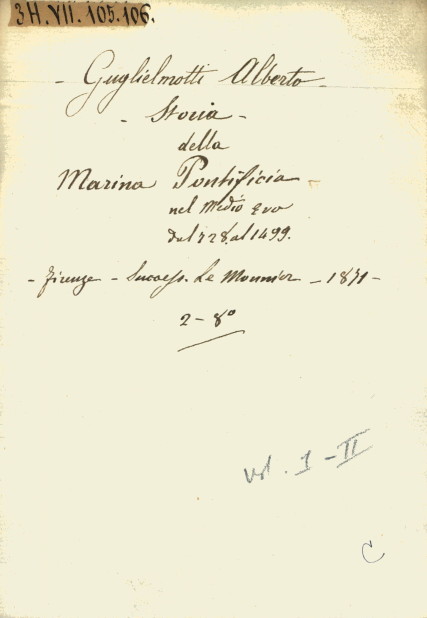 3H.VII.105.106.
- Guglielmotti Alberto -
- Storia -
della
Marina Pontificia -
nel Medio Evo
dal 728. al 1499.
- Firenze - Success. Le Monnier - 1871 -
2 - 8º
vol. I - II
C